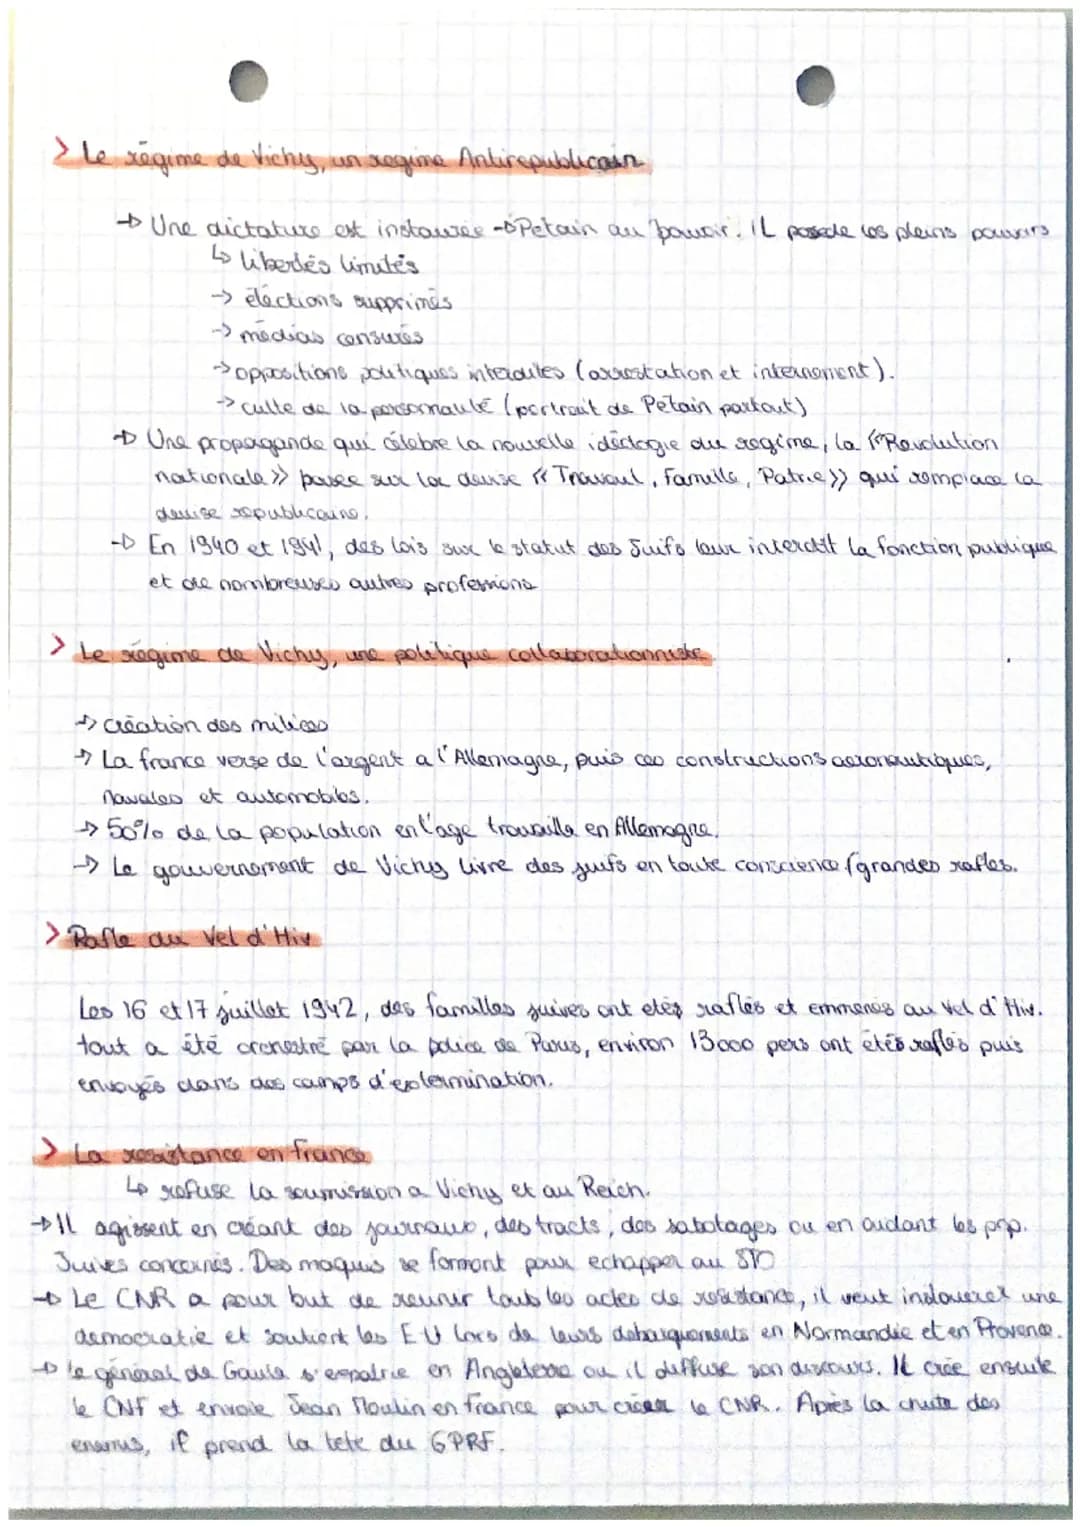 > Le régime de Vichy, un regime Antirepublicain
→ Une dictature est instaurée → Petain au pouvoir. IL possede les pleins pouvoirs
↳ libertés limités
→ élections supprimés
→ médias censurés
→ oppositions politiques interdites (arrestation et internement).
→ culte de la personnalité (portrait de Petain partout)
→ Une propagande qui célebre la nouvelle idéologie du regime, la « Revolution
nationale » basee sur la devise « Travail, Famille, Patrie » qui remplace la
devise republicaine.
→ En 1940 et 1941, des lois sur le statut des Juifs leur interdit la fonction publique
et de nombreuses autres professions
> Le régime de Vichy, une politique collaborationniste
→ création des milices
→ La france verse de l'argent a l'Allemagne, puis ces constructions aeronautiques,
navales et automobiles.
→ 50% de la population en l'age travailla en Allemagne.
→ Le gouvernement de Vichy livre des juifs en toute conscience (grandes rafles.
> Rafle du Vel d'Hiv
Les 16 et 17 juillet 1942, des familles juives ont etés raflés et emmenés au vel d'Hiv.
tout a été orchestré par la police de Paris, environ 13000 pers ont étés raflés puis
envoyés dans des camps d'extermination.
> La resistance en france
↳ refuse la soumission a Vichy et au Reich.
→ Il agissent en créant des journaux, des tracts, des sabotages ou en aidant les pop.
Juives concernés. Des maquis se forment pour echapper au STO
→ Le CNR a pour but de reunir touts les actes de resistance, il veut instaurer une
democratie et soutient les EU lors de leurs debarquements en Normandie et en Provence.
→ le général de Gaule s'expatrie en Angleterre ou il diffuse son discours. Il crée ensuite
le CNF et envoie Jean Moulin en france pour créer le CNR. Après la chute des
enemis, il prend la tete du GPRF.